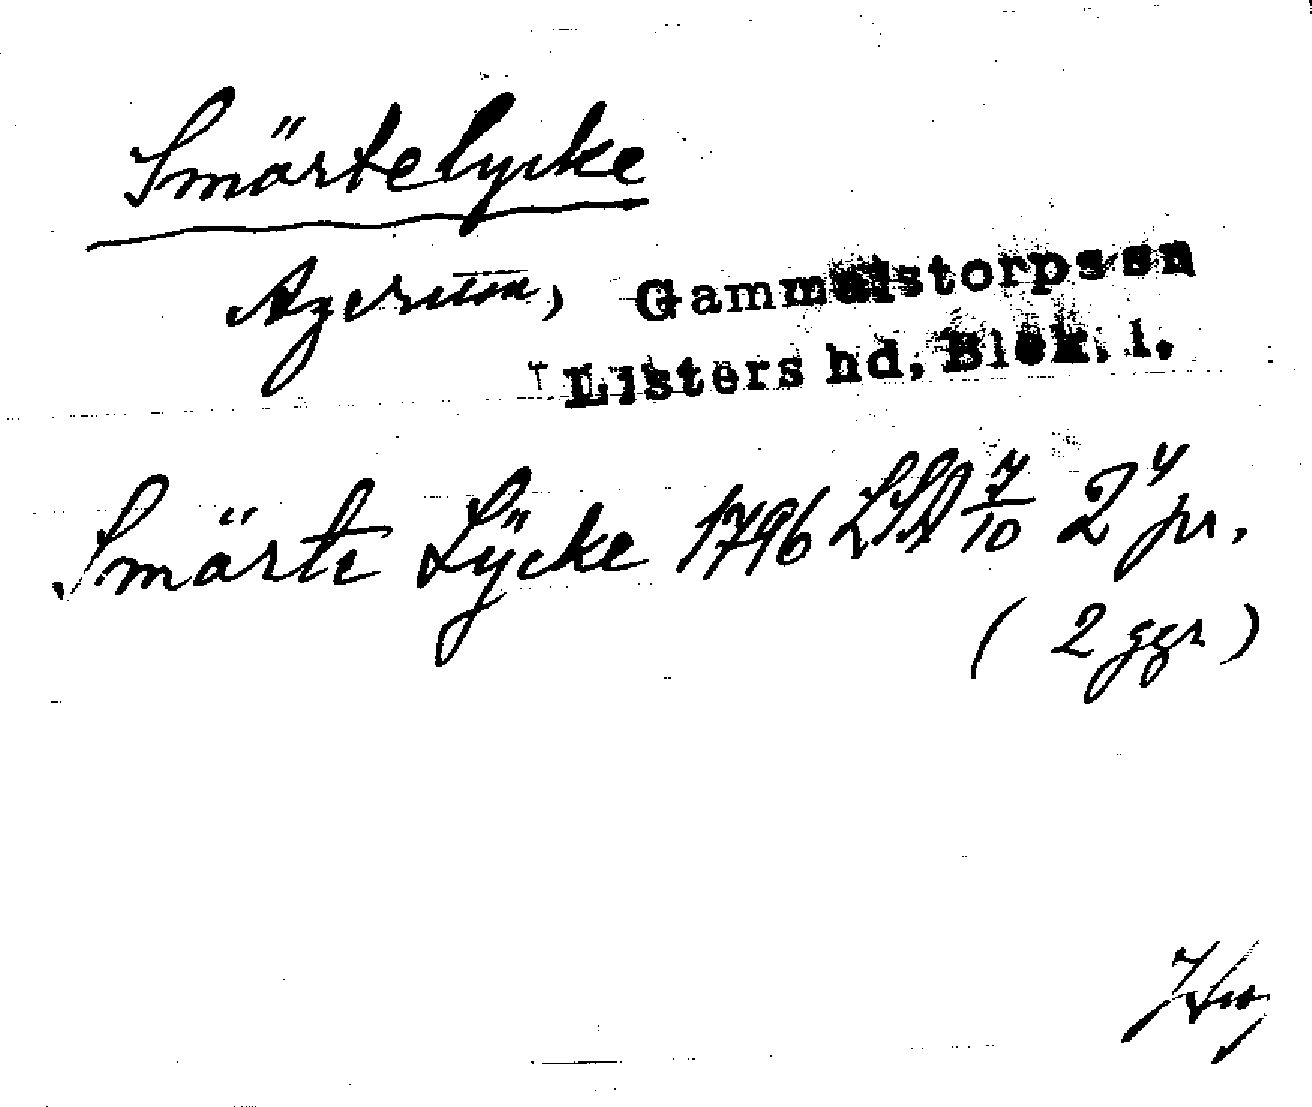 Smörtelycke
Agerum, Gammalstorps sn
Listers hd, Blek. l.
Smörte Lÿcke 1796 LSA 7/10 2 pr.
(2 ggr)